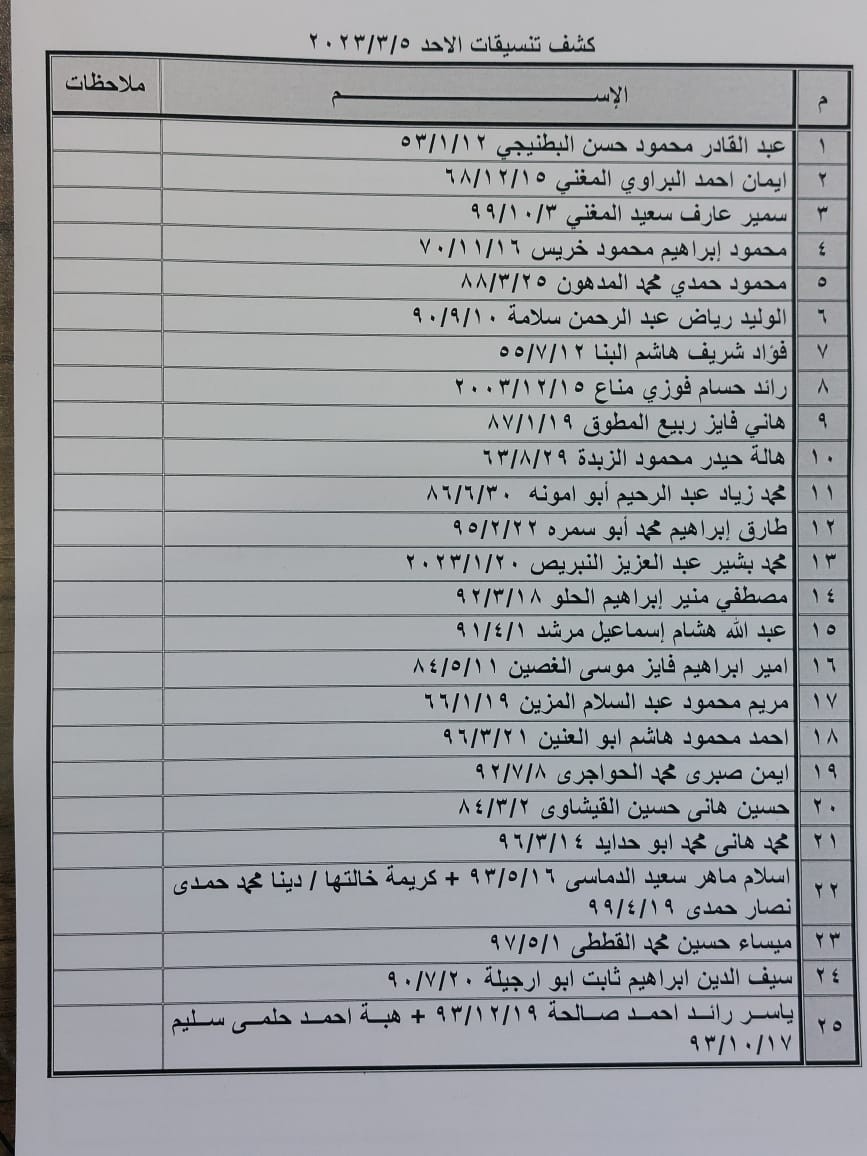 كشف تنسيقات الاحد ٢٠٢٣/٣/٥
م الإســـــــم ملاحظات
١ عبد القادر محمود حسن البطنيجي ٥٣/١/١٢
٢ ايمان احمد البراوي المغني ٦٨/١٢/١٥
٣ سمير عارف سعيد المغني ٩٩/١٠/٣
٤ محمود إبراهيم محمود خريس ٧٠/١١/١٦
٥ محمود حمدي محمد المدهون ٨٨/٣/٢٥
٦ الوليد رياض عبد الرحمن سلامة ٩٠/٩/١٠
٧ فؤاد شريف هاشم البنا ٥٥/٧/١٢
٨ رائد حسام فوزي مناع ٢٠٠٣/١٢/١٥
٩ هاني فايز ربيع المطوق ٨٧/١/١٩
١٠ هالة حيدر محمود الزبدة ٦٣/٨/٢٩
١١ محمد زياد عبد الرحيم أبو امونه ٨٦/٦/٣٠
١٢ طارق إبراهيم محمد أبو سمره ٩٥/٢/٢٢
١٣ محمد بشير عبد العزيز النبريص ٢٠٢٣/١/٢٠
١٤ مصطفي منير إبراهيم الحلو ٩٢/٣/١٨
١٥ عبد الله هشام إسماعيل مرشد ٩١/٤/١
١٦ امير ابراهيم فايز موسى الغصين ٨٤/٥/١١
١٧ مريم محمود عبد السلام المزين ٦٦/١/١٩
١٨ احمد محمود هاشم ابو العنين ٩٦/٣/٢١
١٩ ايمن صبرى محمد الحواجرى ٩٢/٧/٨
٢٠ حسين هانى حسين القيشاوى ٨٤/٣/٢
٢١ محمد هانى محمد ابو حدايد ٩٦/٣/١٤
٢٢ اسلام ماهر سعيد الدماسى ٩٣/٥/١٦ + كريمة خالتها / دينا محمد حمدى
نصار حمدى ٩٩/٤/١٩
٢٣ ميساء حسين محمد القططى ٩٧/٥/١
٢٤ سيف الدين ابراهيم ثابت ابو ارجيلة ٩٠/٧/٢٠
٢٥ ياسر رائد احمد صالحة ٩٣/١٢/١٩ + هبة احمد حلمى سليم
٩٣/١٠/١٧